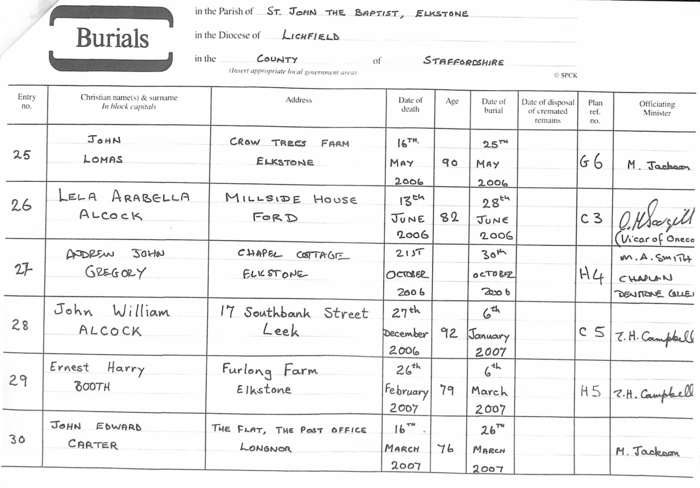 Burials
in the Parish of ST. JOHN THE BAPTIST, ELKSTONE
in the Diocese of LICHFIELD
in the COUNTY of STAFFORDSHIRE
(Insert appropriate local government area)
© SPCK
Entry no. Christian name(s) & surname In block capitals Address Date of death Age Date of burial Date of disposal of cremated remains Plan ref. no. Officiating Minister
25 JOHN LOMAS CROW TREES FARM ELKSTONE 16TH. MAY 2006 90 25TH MAY 2006 G6 M. Jackson
26 LELA ARABELLA ALCOCK MILLSIDE HOUSE FORD 13th JUNE 2006 82 28th JUNE 2006 C3 (Vicar of Oneco
27 ANDREW JOHN GREGORY CHAPEL COTTAGE ELKSTONE 21ST OCTOBER 2006 30th OCTOBER 2006 H4 M.A. SMITH CHAPLAIN DENSTONE COLLE
28 John William ALCOCK 17 Southbank Street Leek 27th December 2006 92 6th January 2007 C5 T.H. Campbell
29 Ernest Harry BOOTH Furlong Farm Elkstone 26th February 2007 79 6th March 2007 H5 T.H. Campbell
30 JOHN EDWARD CARTER THE FLAT, THE POST OFFICE LONGNOR 16TH MARCH 2007 76 26TH MARCH 2007 M. Jackson